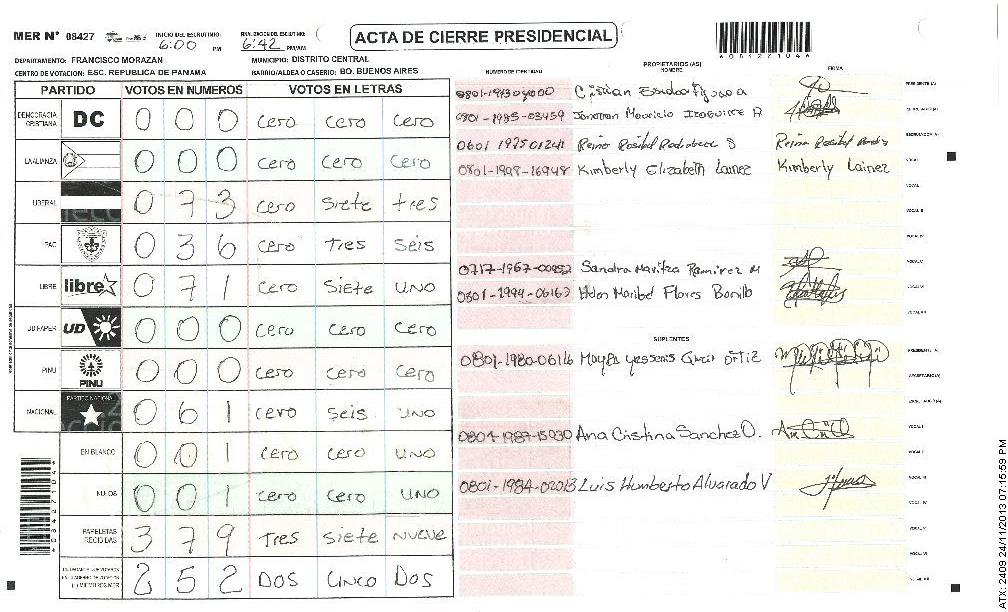 MER N° 08427
INICIO DEL ESCRUTINIO: 6:00 PM
FINALIZACION DEL ESCRUTINIO: 6:42 PM/AM
ACTA DE CIERRE PRESIDENCIAL
DEPARTAMENTO: FRANCISCO MORAZAN
MUNICIPIO: DISTRITO CENTRAL
CENTRO DE VOTACION: ESC. REPUBLICA DE PANAMA
BARRIO/ALDEA O CASERIO: BO. BUENOS AIRES
PARTIDO VOTOS EN NUMEROS VOTOS EN LETRAS
DEMOCRACIA CRISTIANA DC 0 0 0 cero cero cero
LA ALIANZA 0 0 0 cero cero cero
LIBERAL 0 7 3 cero siete tres
PAC 0 3 6 cero Tres seis
LIBRE libre 0 7 1 cero siete UNO
UD FAPER UD 0 0 0 cero cero cero
PINU PINU 0 0 0 cero cero cero
NACIONAL PARTIDO NACIONAL 0 6 1 cero seis UNO
EN BLANCO 0 0 1 cero cero UNO
NULOS 0 0 1 cero cero UNO
PAPELETAS RECIBIDAS 3 7 9 Tres siete nueve
2 5 2 DOS cinco Dos
NUMERO DE IDENTIDAD
PROPIETARIOS (AS)
NOMBRE
FIRMA
PRESIDENTE (A)
0801-1985-03459
SECRETARIO (A)
Reina Rosibel
ESCRUTADOR (A)
0801-1998-16948 Kimberly Elizabeth Lainez Kimberly Lainez
VOCAL I
0717-1967-00252 Sandra Maritza Ramirez M
0801-1994-06163 Maribel Flores Bonilla
SUPLENTES
0801-1980-06116 Ortiz
PRESIDENTE (A)
SECRETARIO (A)
0801-1987-15030 Ana Cristina Sanchez O.
0801-1984-02013 Luis Humberto Alvarado V
ATX: 2409 24/11/2013 07:15:59 PM